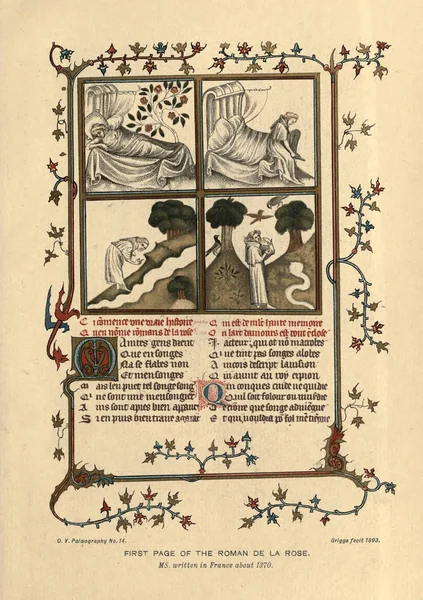 Ci cōmence vne vraie histoire
Quen nōme rōmans de la rose
Maintes gens dient
Que en songes
Na se fables non
Et mensonges
Mais len puet tel songe song
Qui ne sont mie mensongier
Ains sont apres bien apparāt
Si en puis bien traire a garāt
Qui est de mlt haute memoire
Ou lart damours est tout ēclose
J. acteur qui ot nō macrobes
Qui ne tint pas songes a lobes
Aincois descript lauision
Qui auint au roy cipion
Quiconques cuide ne qui die
Que soit folour ou musardie
De croire que songe aduiēgne
Et qui vouldra por fol mē tiēgne
O. V. Palæography No. 14.
Griggs fecit 1893.
FIRST PAGE OF THE ROMAN DE LA ROSE.
MS. written in France about 1370.